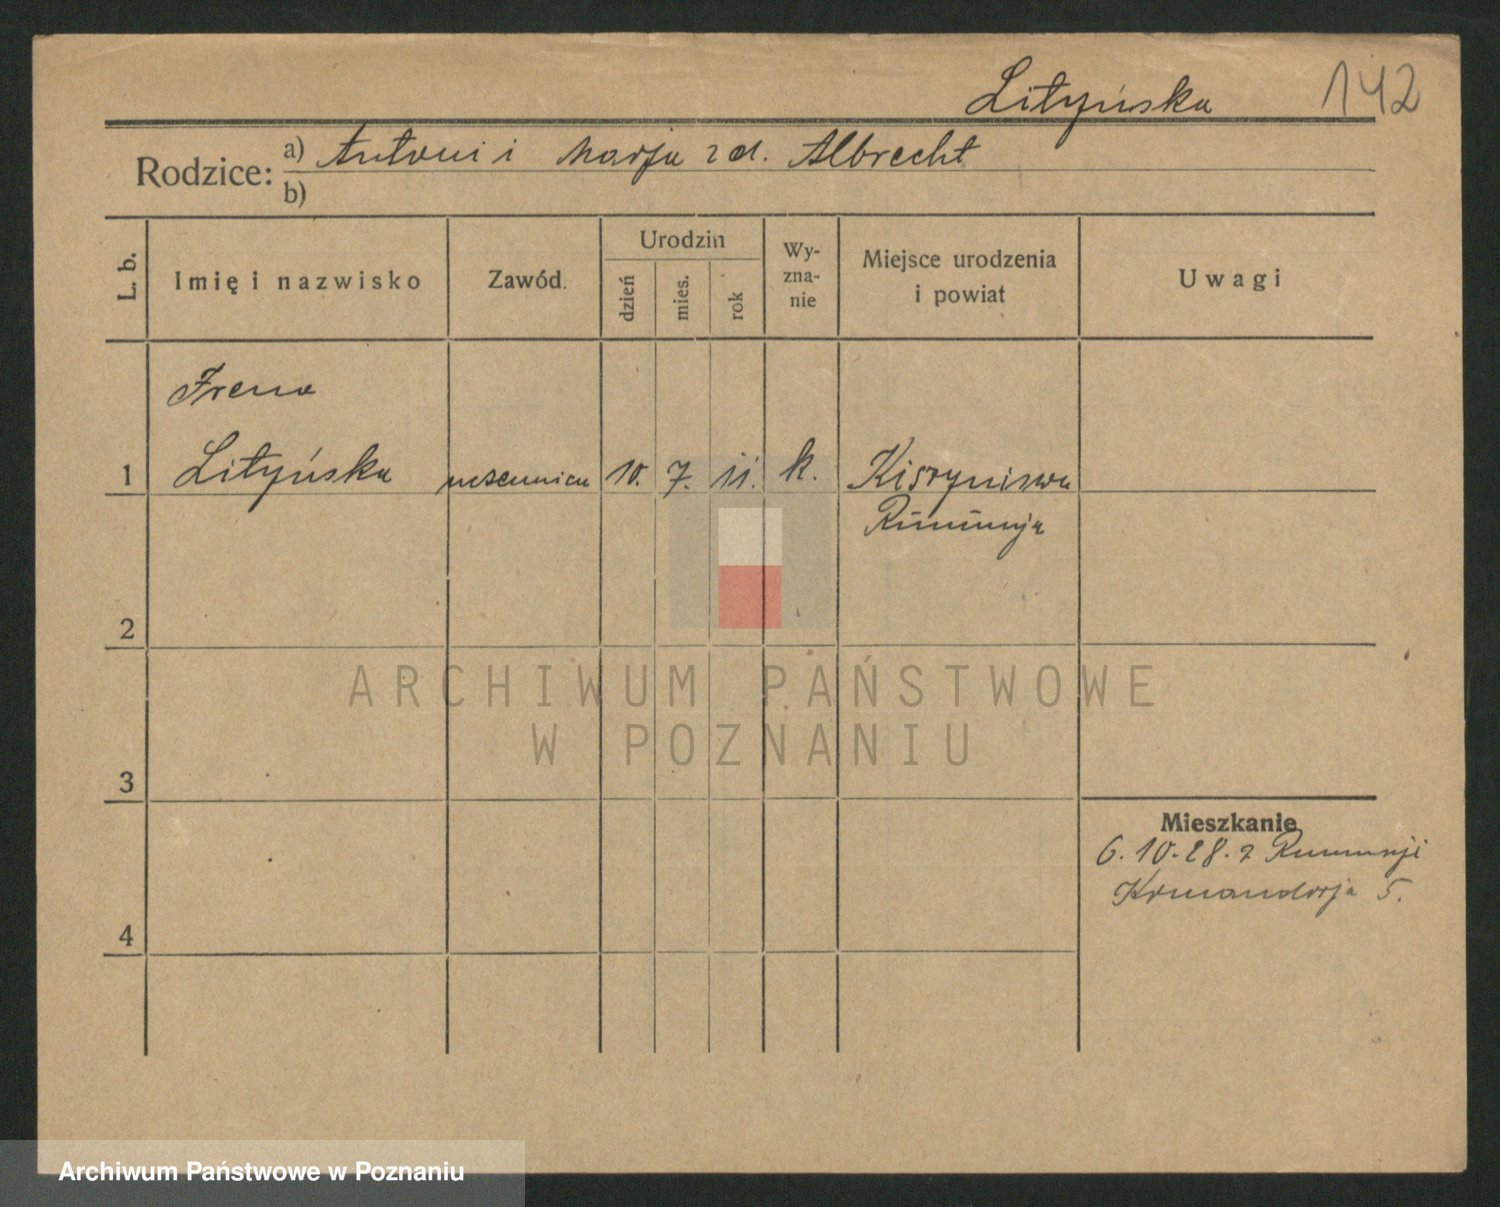 Lityńska 142
Rodzice: a) Antoni i Marja z d. Albrecht
b)
L. b.
Imię i nazwisko
Zawód.
Urodzin
dzień
mies.
rok
Wy-
zna-
nie
Miejsce urodzenia
i powiat
Uwagi
Irena
1 Lityńska uczennica 10. 7. 11. k. Kiszyniewa
Rumunja
2
3
4
Mieszkanie
6.10.28. z Rumunji
Komandorja 5.
ARCHIWUM PAŃSTWOWE
W POZNANIU
Archiwum Państwowe w Poznaniu